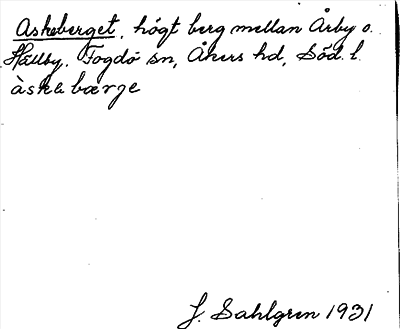 Askeberget, högt berg mellan Årby o.
Hällby. Fogdö sn, Åkers hd, Söd. l.
àske bærje
J. Sahlgren 1931